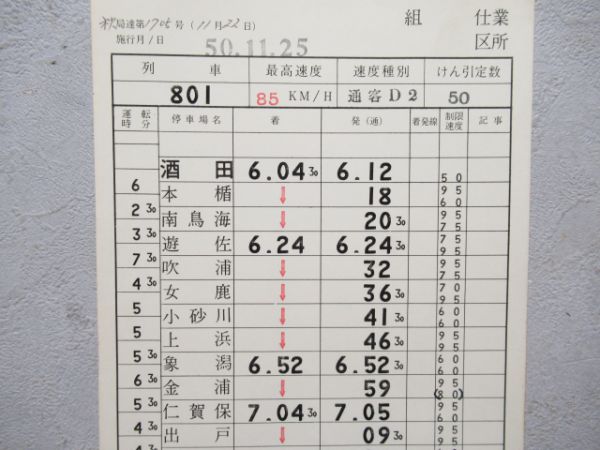 秋局達第1705号(11月22日)
組 仕業
施行月/日 50.11.25 区所
列車 最高速度 速度種別 けん引定数
801 85 KM/H 通客D2 50
運転時分 停車場名 着 発(通) 着発線 制限速度 記事
酒田 6.04 30 6.12 50
6 本楯 ↓ 18 95 60
2 30 南鳥海 ↓ 20 30 95 75
3 30 遊佐 6.24 6.24 30 75 95
7 30 吹浦 ↓ 32 95 75
4 30 女鹿 ↓ 36 30 70 95
5 小砂川 ↓ 41 30 60 60
5 上浜 ↓ 46 30 95 95
5 30 象潟 6.52 6.52 30 60 60
6 30 金浦 ↓ 59 95 (80)
5 30 仁賀保 7.04 30 7.05 95 60
4 30 出戸 ↓ 09 30 95 95